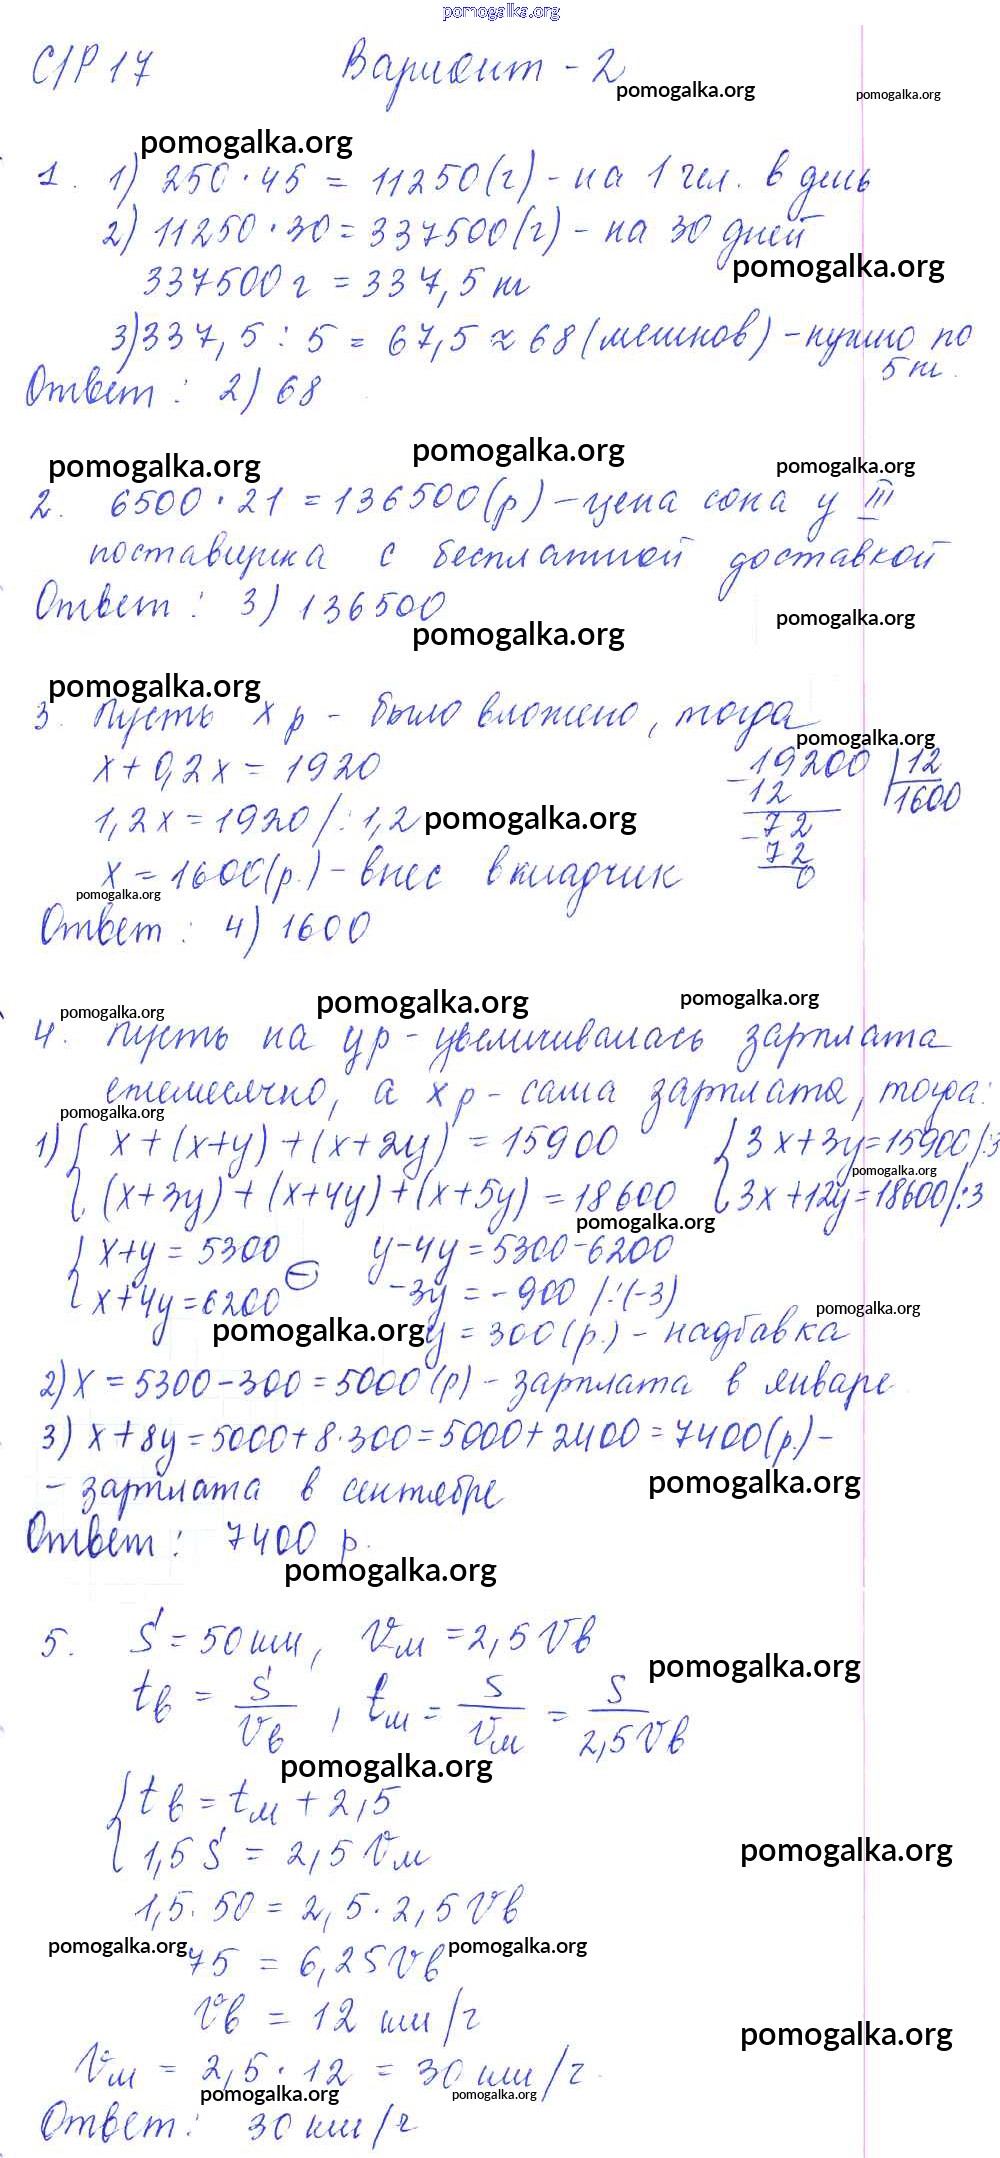 pomogalka.org
С/Р 17 Вариант - 2
pomogalka.org pomogalka.org
pomogalka.org
1. 1) 250 · 45 = 11250 (г) - на 1 чел. в день
2) 11250 · 30 = 337500 (г) - на 30 дней
pomogalka.org
337500 г = 337,5 кг
3) 337,5 : 5 = 67,5 ≈ 68 (мешков) - нужно по
5 кг.
Ответ: 2) 68
pomogalka.org pomogalka.org pomogalka.org
2. 6500 · 21 = 136500 (р) - цена сока у III
поставщика с бесплатной доставкой
Ответ: 3) 136500
pomogalka.org pomogalka.org
pomogalka.org
3. Пусть x р - было вложено, тогда
pomogalka.org
x + 0,2x = 1920
1,2x = 1920 /: 1,2 pomogalka.org
x = 1600 (р.) - внес вкладчик
19200 | 12
12 1600
72
72
0
pomogalka.org
Ответ: 4) 1600
pomogalka.org pomogalka.org pomogalka.org
4. Пусть на y р - увеличивалась зарплата
ежемесячно, а x р - сама зарплата, тогда:
pomogalka.org
1) { x + (x+y) + (x+2y) = 15900 { 3x + 3y = 15900 /:3
pomogalka.org
(x+3y) + (x+4y) + (x+5y) = 18600 3x + 12y = 18600 /:3
pomogalka.org
{ x+y = 5300 ⊖ y - 4y = 5300 - 6200
x+4y = 6200 -3y = -900 /:(-3)
pomogalka.org
pomogalka.org y = 300 (р.) - надбавка
2) x = 5300 - 300 = 5000 (р) - зарплата в январе
3) x + 8y = 5000 + 8·300 = 5000 + 2400 = 7400 (р.) -
pomogalka.org
- зарплата в сентябре
Ответ: 7400 р.
pomogalka.org
5. S = 50 км, Vм = 2,5 Vв
pomogalka.org
tв = S/Vв, tм = S/Vм = S/2,5Vв
pomogalka.org
{ tв = tм + 2,5
1,5 S = 2,5 Vм
pomogalka.org
1,5 · 50 = 2,5 · 2,5 Vв
pomogalka.org pomogalka.org
75 = 6,25 Vв
Vв = 12 км/ч
pomogalka.org
Vм = 2,5 · 12 = 30 км/ч.
pomogalka.org pomogalka.org
Ответ: 30 км/ч